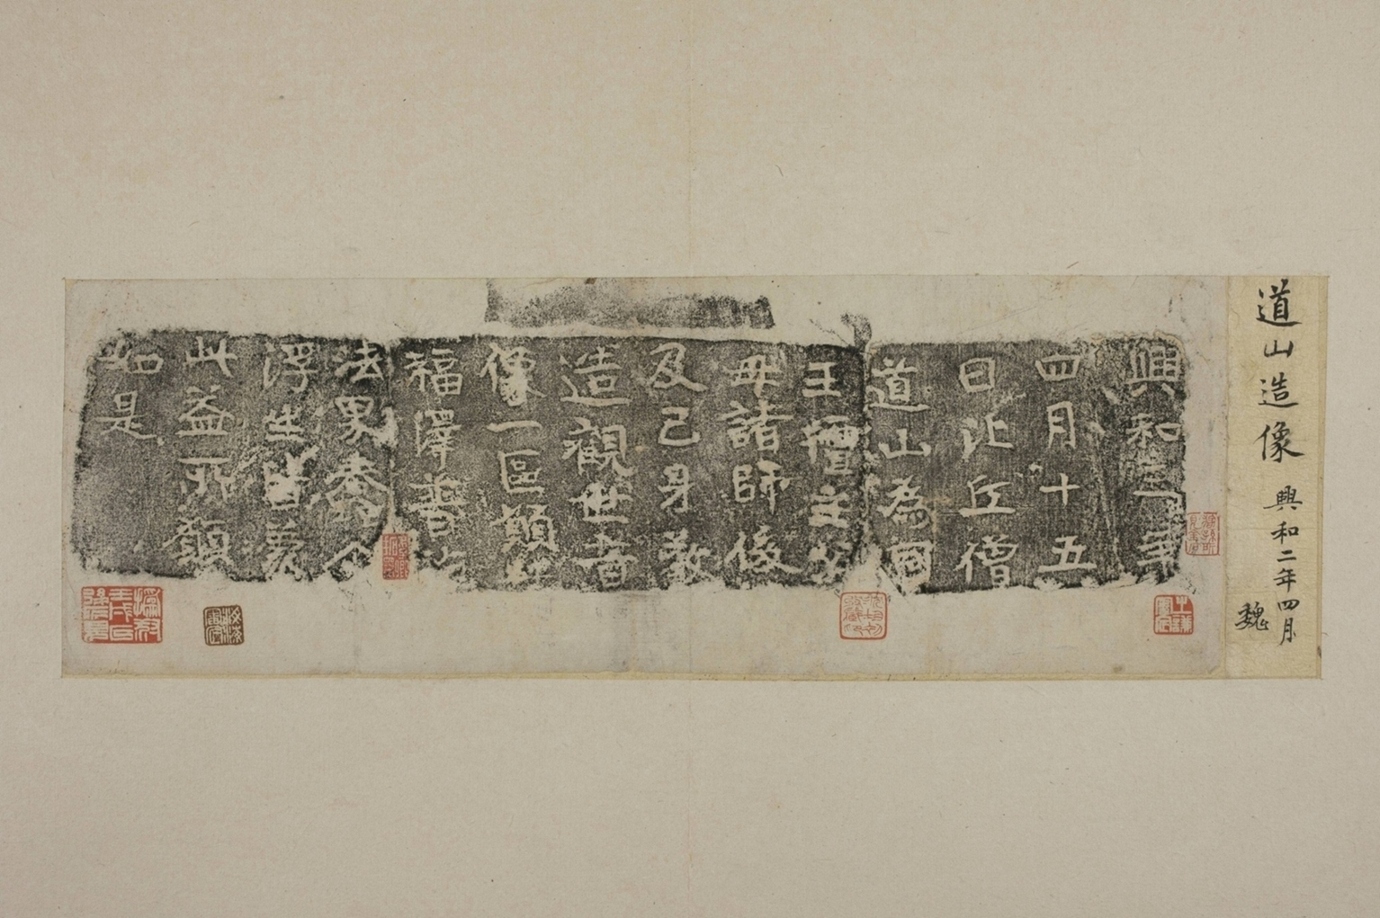 道山造像 興和二年四月
魏
興和二年
四月十五
日比丘僧
道山為國
王檀主父
母諸師後
及己身敬
造觀世音
像一區願
福澤普
法界
浮生
此益所願
如是